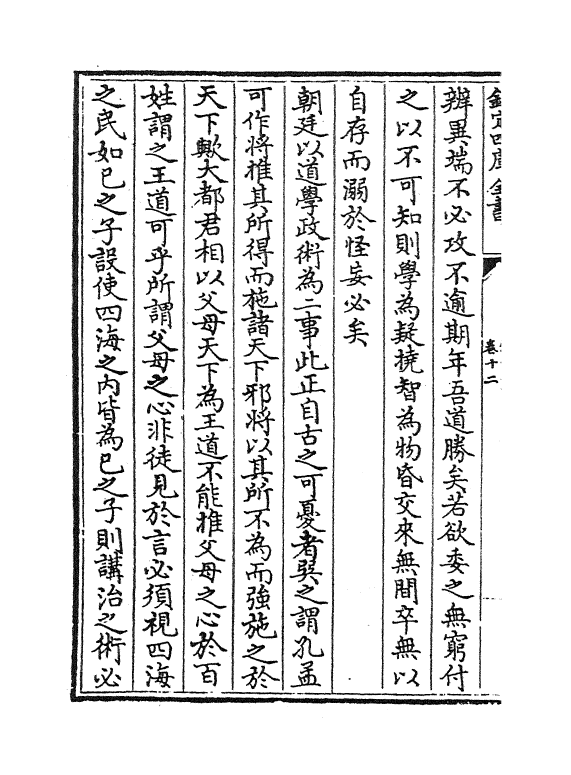 欽定四庫全書
卷十二
辨異端不必攻不逾期年吾道勝矣若欲委之無窮付
之以不可知則學為疑撓智為物昏交來無間卒無以
自存而溺於怪妄必矣
朝廷以道學政術為二事此正自古之可憂者巽之謂孔孟
可作將推其所得而施諸天下邪將以其所不為而強施之於
天下歟大都君相以父母天下為王道不能推父母之心於百
姓謂之王道可乎所謂父母之心非徒見於言必須視四海
之民如已之子設使四海之内皆為已之子則講治之術必